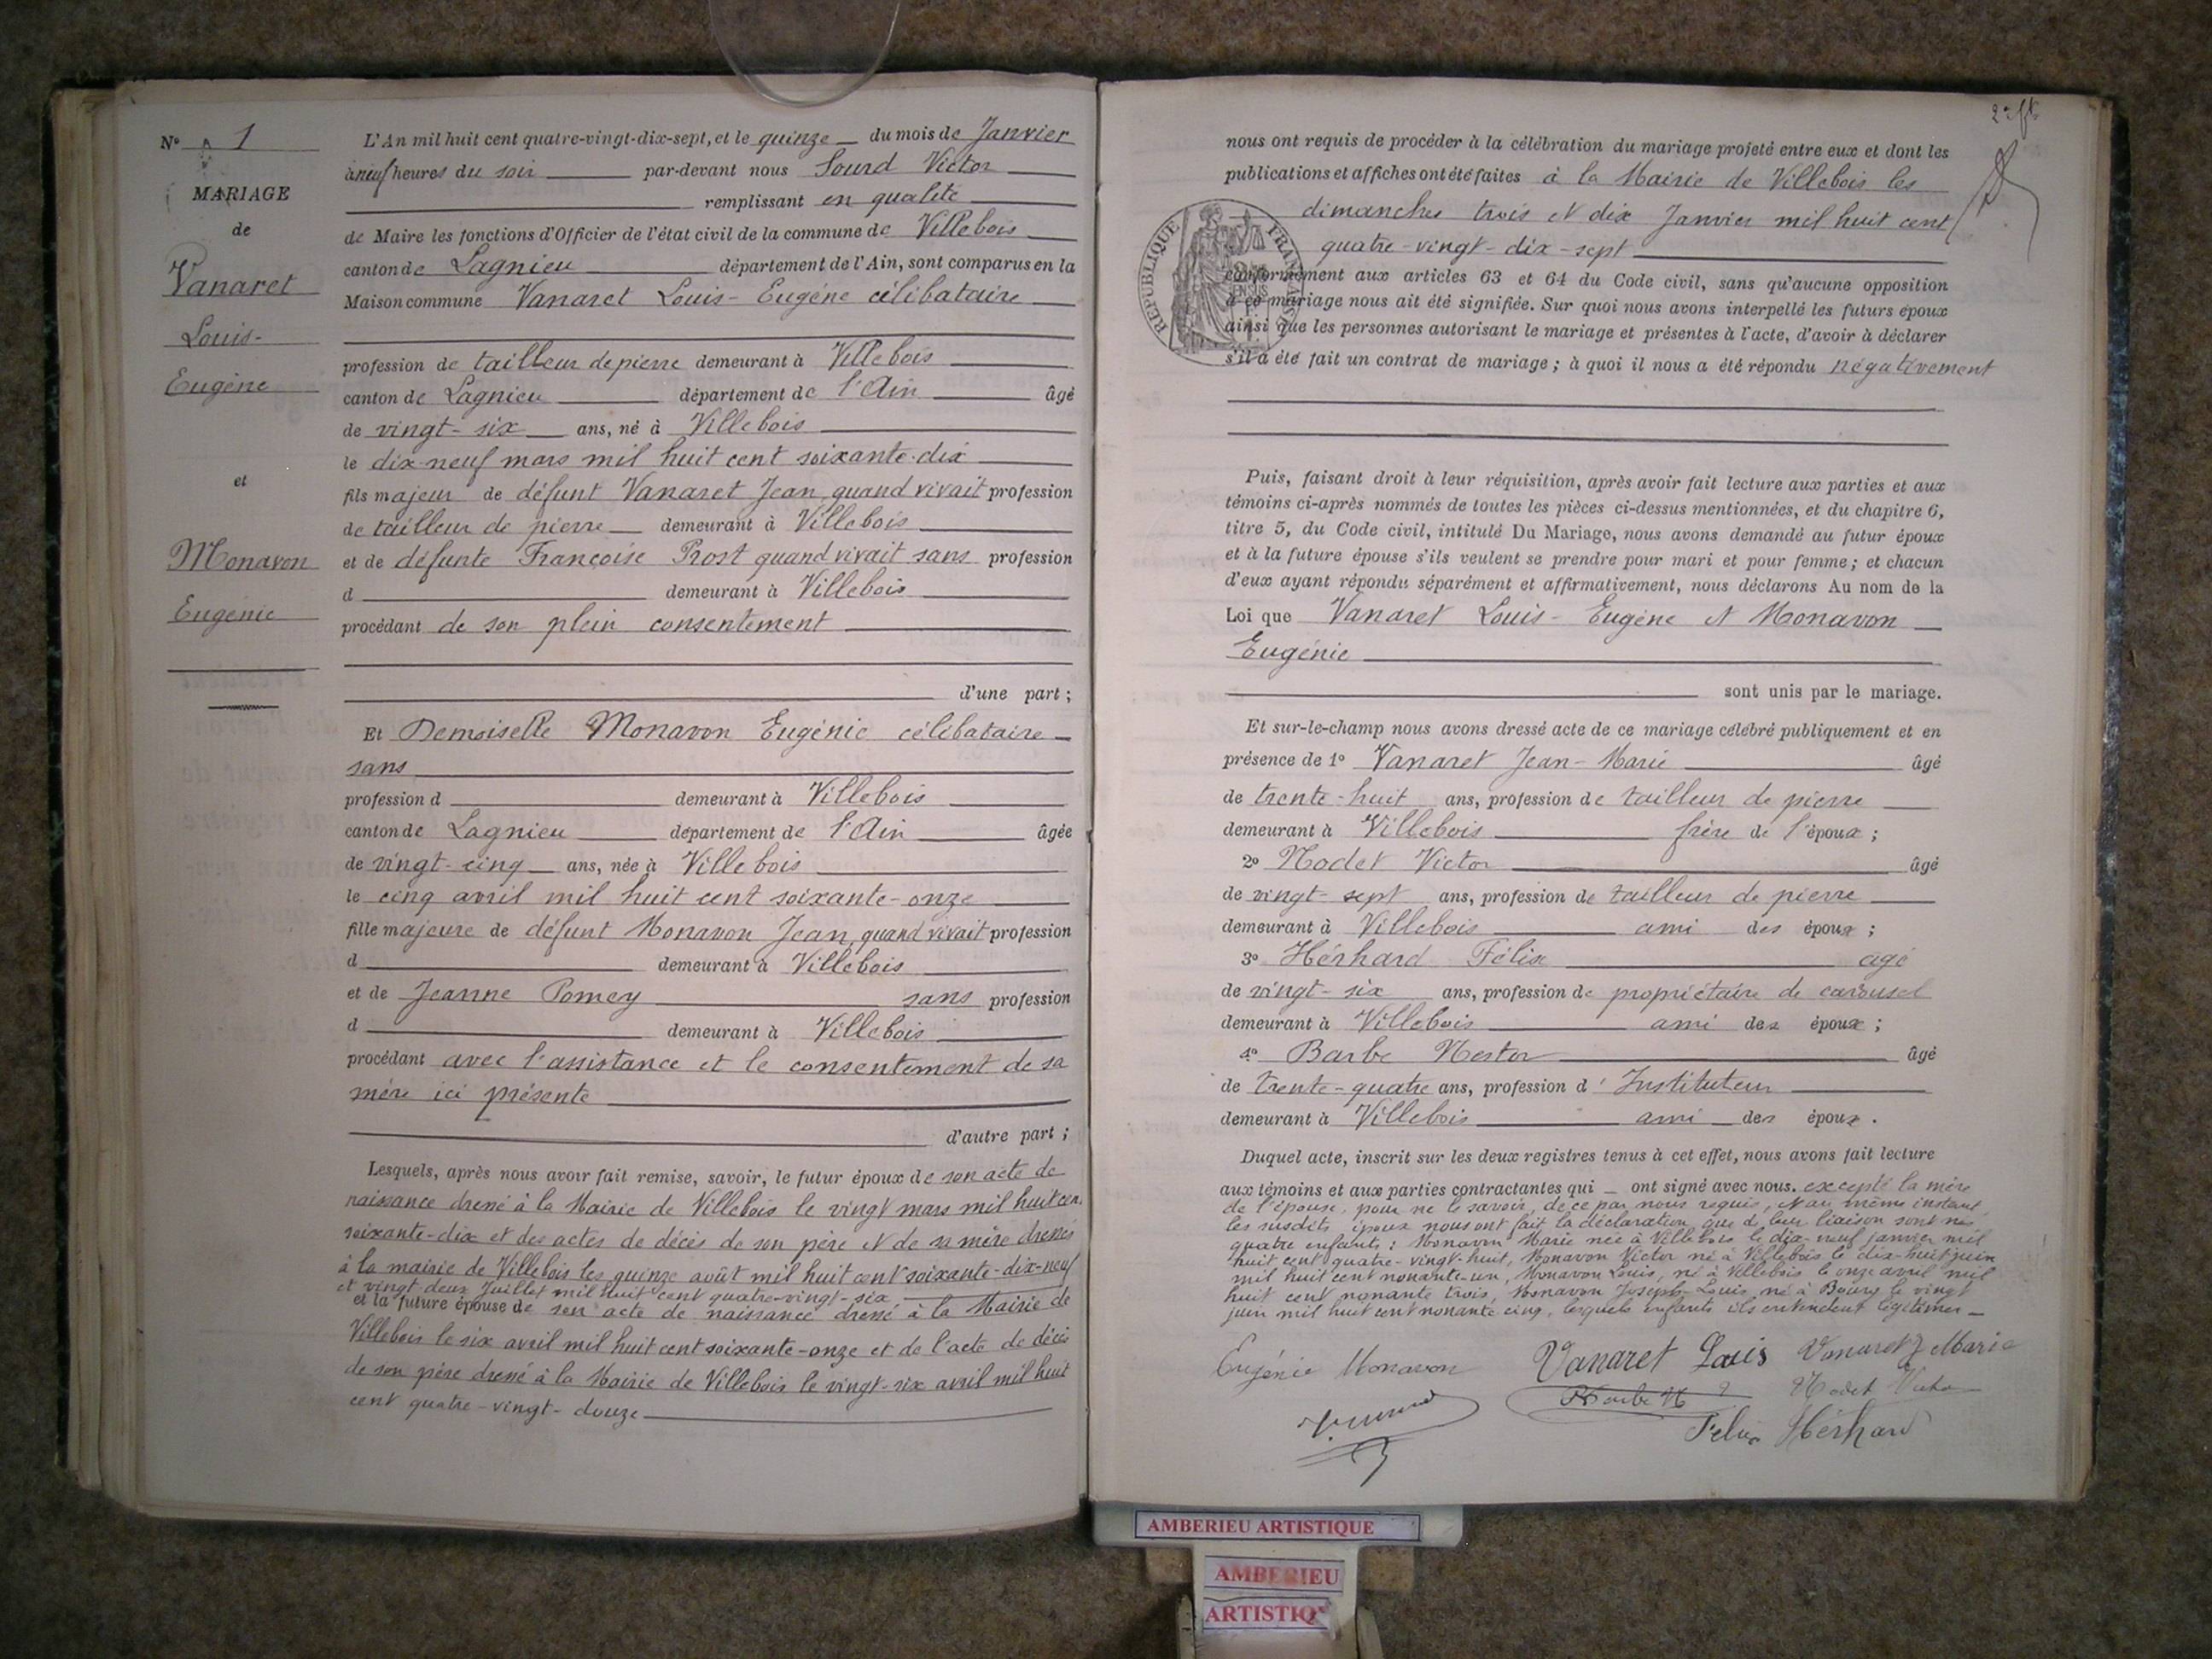 N° 1
MARIAGE
de
Vanaret
Louis-
Eugène
et
Monavon
Eugénie
L'An mil huit cent quatre-vingt-dix-sept, et le quinze du mois de Janvier
à neuf heures du soir par-devant nous Sourd Victor
remplissant en qualité
de Maire les fonctions d'Officier de l'état civil de la commune de Villebois
canton de Lagnieu département de l'Ain, sont comparus en la
Maison commune Vanaret Louis-Eugène célibataire
profession de tailleur de pierre demeurant à Villebois
canton de Lagnieu département de l'Ain âgé
de vingt-six ans, né à Villebois
le dix-neuf mars mil huit cent soixante-dix
fils majeur de défunt Vanaret Jean, quand vivait profession
de tailleur de pierre demeurant à Villebois
et de défunte Françoise Prost quand vivait sans profession
d demeurant à Villebois
procédant de son plein consentement
d'une part ;
Et Demoiselle Monavon Eugénie célibataire
sans
profession d demeurant à Villebois
canton de Lagnieu département de l'Ain âgée
de vingt-cinq ans, née à Villebois
le cinq avril mil huit cent soixante-onze
fille majeure de défunt Monavon Jean, quand vivait profession
d demeurant à Villebois
et de Jeanne Pomey sans profession
d demeurant à Villebois
procédant avec l'assistance et le consentement de sa
mère ici présente
d'autre part ;
Lesquels, après nous avoir fait remise, savoir, le futur époux de son acte de
naissance dressé à la Mairie de Villebois le vingt mars mil huit cent
soixante-dix et des actes de décès de son père et de sa mère dressés
à la mairie de Villebois les quinze août mil huit cent soixante-dix-neuf
et vingt deux Juillet mil huit cent quatre-vingt-six
et la future épouse de son acte de naissance dressé à la Mairie de
Villebois le six avril mil huit cent soixante-onze et de l'acte de décès
de son père dressé à la Mairie de Villebois le vingt-six avril mil huit
cent quatre-vingt-douze
nous ont requis de procéder à la célébration du mariage projeté entre eux et dont les
publications et affiches ont été faites à la Mairie de Villebois les
dimanches trois et dix Janvier mil huit cent
quatre-vingt-dix-sept
RÉPUBLIQUE FRANÇAISE
conformément aux articles 63 et 64 du Code civil, sans qu'aucune opposition
à ce mariage nous ait été signifiée. Sur quoi nous avons interpellé les futurs époux
ainsi que les personnes autorisant le mariage et présentes à l'acte, d'avoir à déclarer
s'il a été fait un contrat de mariage ; à quoi il nous a été répondu négativement
Puis, faisant droit à leur réquisition, après avoir fait lecture aux parties et aux
témoins ci-après nommés de toutes les pièces ci-dessus mentionnées, et du chapitre 6,
titre 5, du Code civil, intitulé Du Mariage, nous avons demandé au futur époux
et à la future épouse s'ils veulent se prendre pour mari et pour femme ; et chacun
d'eux ayant répondu séparément et affirmativement, nous déclarons Au nom de la
Loi que Vanaret Louis-Eugène et Monavon
Eugénie
sont unis par le mariage.
Et sur-le-champ nous avons dressé acte de ce mariage célébré publiquement et en
présence de 1° Vanaret Jean-Marie âgé
de trente-huit ans, profession de tailleur de pierre
demeurant à Villebois frère de l'époux ;
2° Nodet Victor âgé
de vingt-sept ans, profession de tailleur de pierre
demeurant à Villebois ami des époux ;
3° Hérhard Félix agé
de vingt-six ans, profession de propriétaire de carousel
demeurant à Villebois ami des époux ;
4° Barbe Nestor âgé
de trente-quatre ans, profession d'Instituteur
demeurant à Villebois ami des époux.
Duquel acte, inscrit sur les deux registres tenus à cet effet, nous avons fait lecture
aux témoins et aux parties contractantes qui ont signé avec nous. excepté la mère
de l'épouse, pour ne le savoir, de ce par nous requis, et au même instant
les susdits époux nous ont fait la déclaration que de leur liaison sont nés
quatre enfants : Monavon Marie née à Villebois le dix-neuf janvier mil
huit cent quatre-vingt-huit, Monavon Victor né à Villebois le dix-huit juin
mil huit cent nonante-un, Monavon Louis, né à Villebois le onze avril mil
huit cent nonante trois, Monavon Joseph-Louis, né à Bourg le vingt
juin mil huit cent nonante cinq, lesquels enfants ils entendent légitimer
Eugénie Monavon Vanaret Louis Vanaret J Marie
Barbe N Nodet Victor
Félix Hérhard
AMBERIEU ARTISTIQUE
AMBERIEU
ARTISTIQ